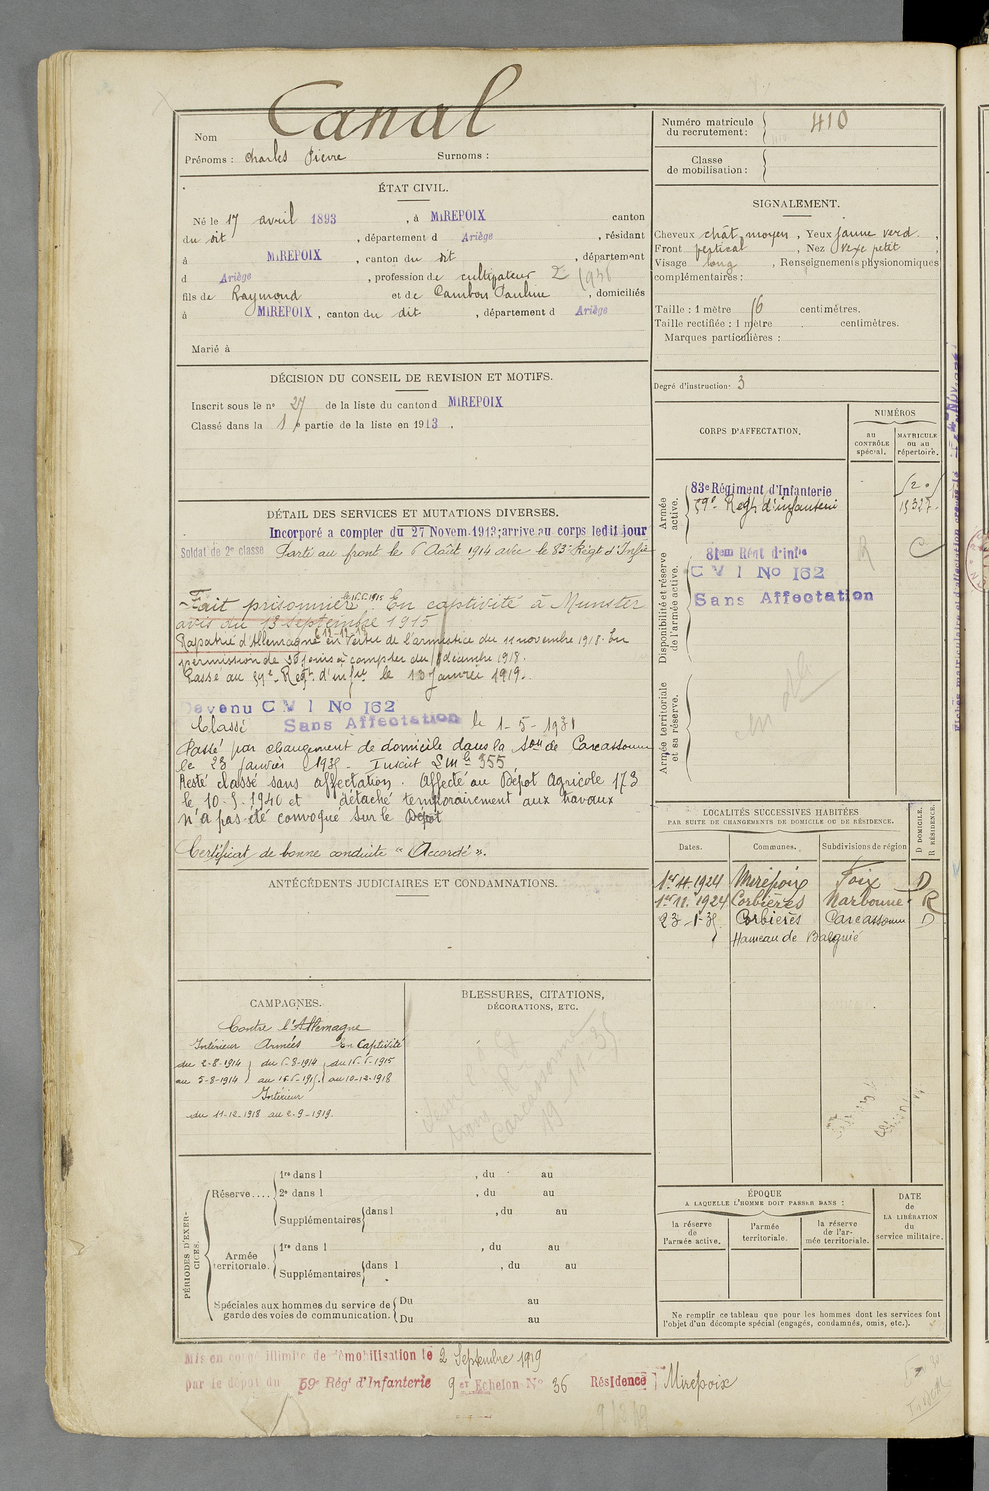 Canal
Nom
Prénoms : Charles Pierre Surnoms :
Numéro matricule du recrutement : 410
Classe de mobilisation :
ÉTAT CIVIL.
Né le 17 avril 1893, à MIREPOIX canton
du dit, département d Ariège, résidant
à MIREPOIX, canton du dit, département
d Ariège, profession de cultipateur
fils de Raymond et de Cambon Pauline, domiciliés
à MIREPOIX, canton du dit, département d Ariège
Marié à
SIGNALEMENT.
Cheveux chât. moyen, Yeux jaune verd.
Front vertical, Nez vexe petit,
Visage long, Renseignements physionomiques
complémentaires :
Taille : 1 mètre centimètres.
Taille rectifiée : 1 mètre centimètres.
Marques particulières :
Degré d'instruction : 3
DÉCISION DU CONSEIL DE REVISION ET MOTIFS.
Inscrit sous le nº 27 de la liste du canton d MIREPOIX
Classé dans la 1e partie de la liste en 1913.
DÉTAIL DES SERVICES ET MUTATIONS DIVERSES.
Incorporé a compter du 27 Novem. 1913; arrive au corps ledit jour
Soldat de 2e classe Parti au front le 6 Août 1914 avec le 83e Régt d'Infie
Fait prisonnier. En captivité à Munster
avis du 13 septembre 1915
Rapatrié d'Allemagne en vertu de l'armistice du 11 novembre 1918. En
permission de 30 jours à compter du décembre 1918.
Passé au 59e Regt d'infie le 10 janvier 1919.
Devenu C V I No 162
Classé Sans Affectation le 1-5-1931
Passé par changement de domicile dans la Son de Carcassonne
le 23 janvier 1935. Inscrit 355
Resté classé sans affectation. Affecté au Dépôt Agricole 173
le 10-5-1940 et détaché temporairement aux travaux
n'a pas été convoqué sur le Dépôt
Certificat de bonne conduite "Accordé".
CORPS D'AFFECTATION.
NUMÉROS
au CONTRÔLE spécial.
MATRICULE ou au répertoire.
Armée active.
83e Régiment d'Infanterie
59e Regt d'infanterie 15327
Disponibilité et réserve de l'armée active.
81em Régt d'Infie
C V I No 162
Sans Affectation
Armée territoriale et sa réserve.
LOCALITÉS SUCCESSIVES HABITÉES
PAR SUITE DE CHANGEMENTS DE DOMICILE OU DE RÉSIDENCE.
D DOMICILE.
R RÉSIDENCE.
Dates. Communes. Subdivisions de région
1er.4.1924 Mirepoix Foix D
1er.11.1924 Corbières Narbonne R
23-1-35 Corbières Carcassonne D
Hameau de Balquié
ANTÉCÉDENTS JUDICIAIRES ET CONDAMNATIONS.
CAMPAGNES.
Contre l'Allemagne
Intérieur Armées En Captivité
du 2-8-1914 du 6-8-1914 du 16-6-1915
au 5-8-1914 au 15-6-1915 au 10-12-1918
Intérieur
du 11-12-1918 au 2-9-1919.
BLESSURES, CITATIONS,
DÉCORATIONS, ETC.
Carcassonne
PÉRIODES D'EXERCICES.
Réserve.... 1re dans l , du au
2e dans l , du au
Supplémentaires dans l , du au
Armée territoriale. 1re dans l , du au
Supplémentaires dans l , du au
Spéciales aux hommes du service de garde des voies de communication. Du au
Du au
ÉPOQUE
A LAQUELLE L'HOMME DOIT PASSER DANS :
la réserve de l'armée active.
l'armée territoriale.
la réserve de l'armée territoriale.
DATE de LA LIBÉRATION du service militaire.
Ne remplir ce tableau que pour les hommes dont les services font
l'objet d'un décompte spécial (engagés, condamnés, omis, etc.).
Mis en congé illimité de démobilisation le 2 Septembre 1919
par le dépôt du 59e Régt d'Infanterie 9er Echelon No 36 Résidence Mirepoix